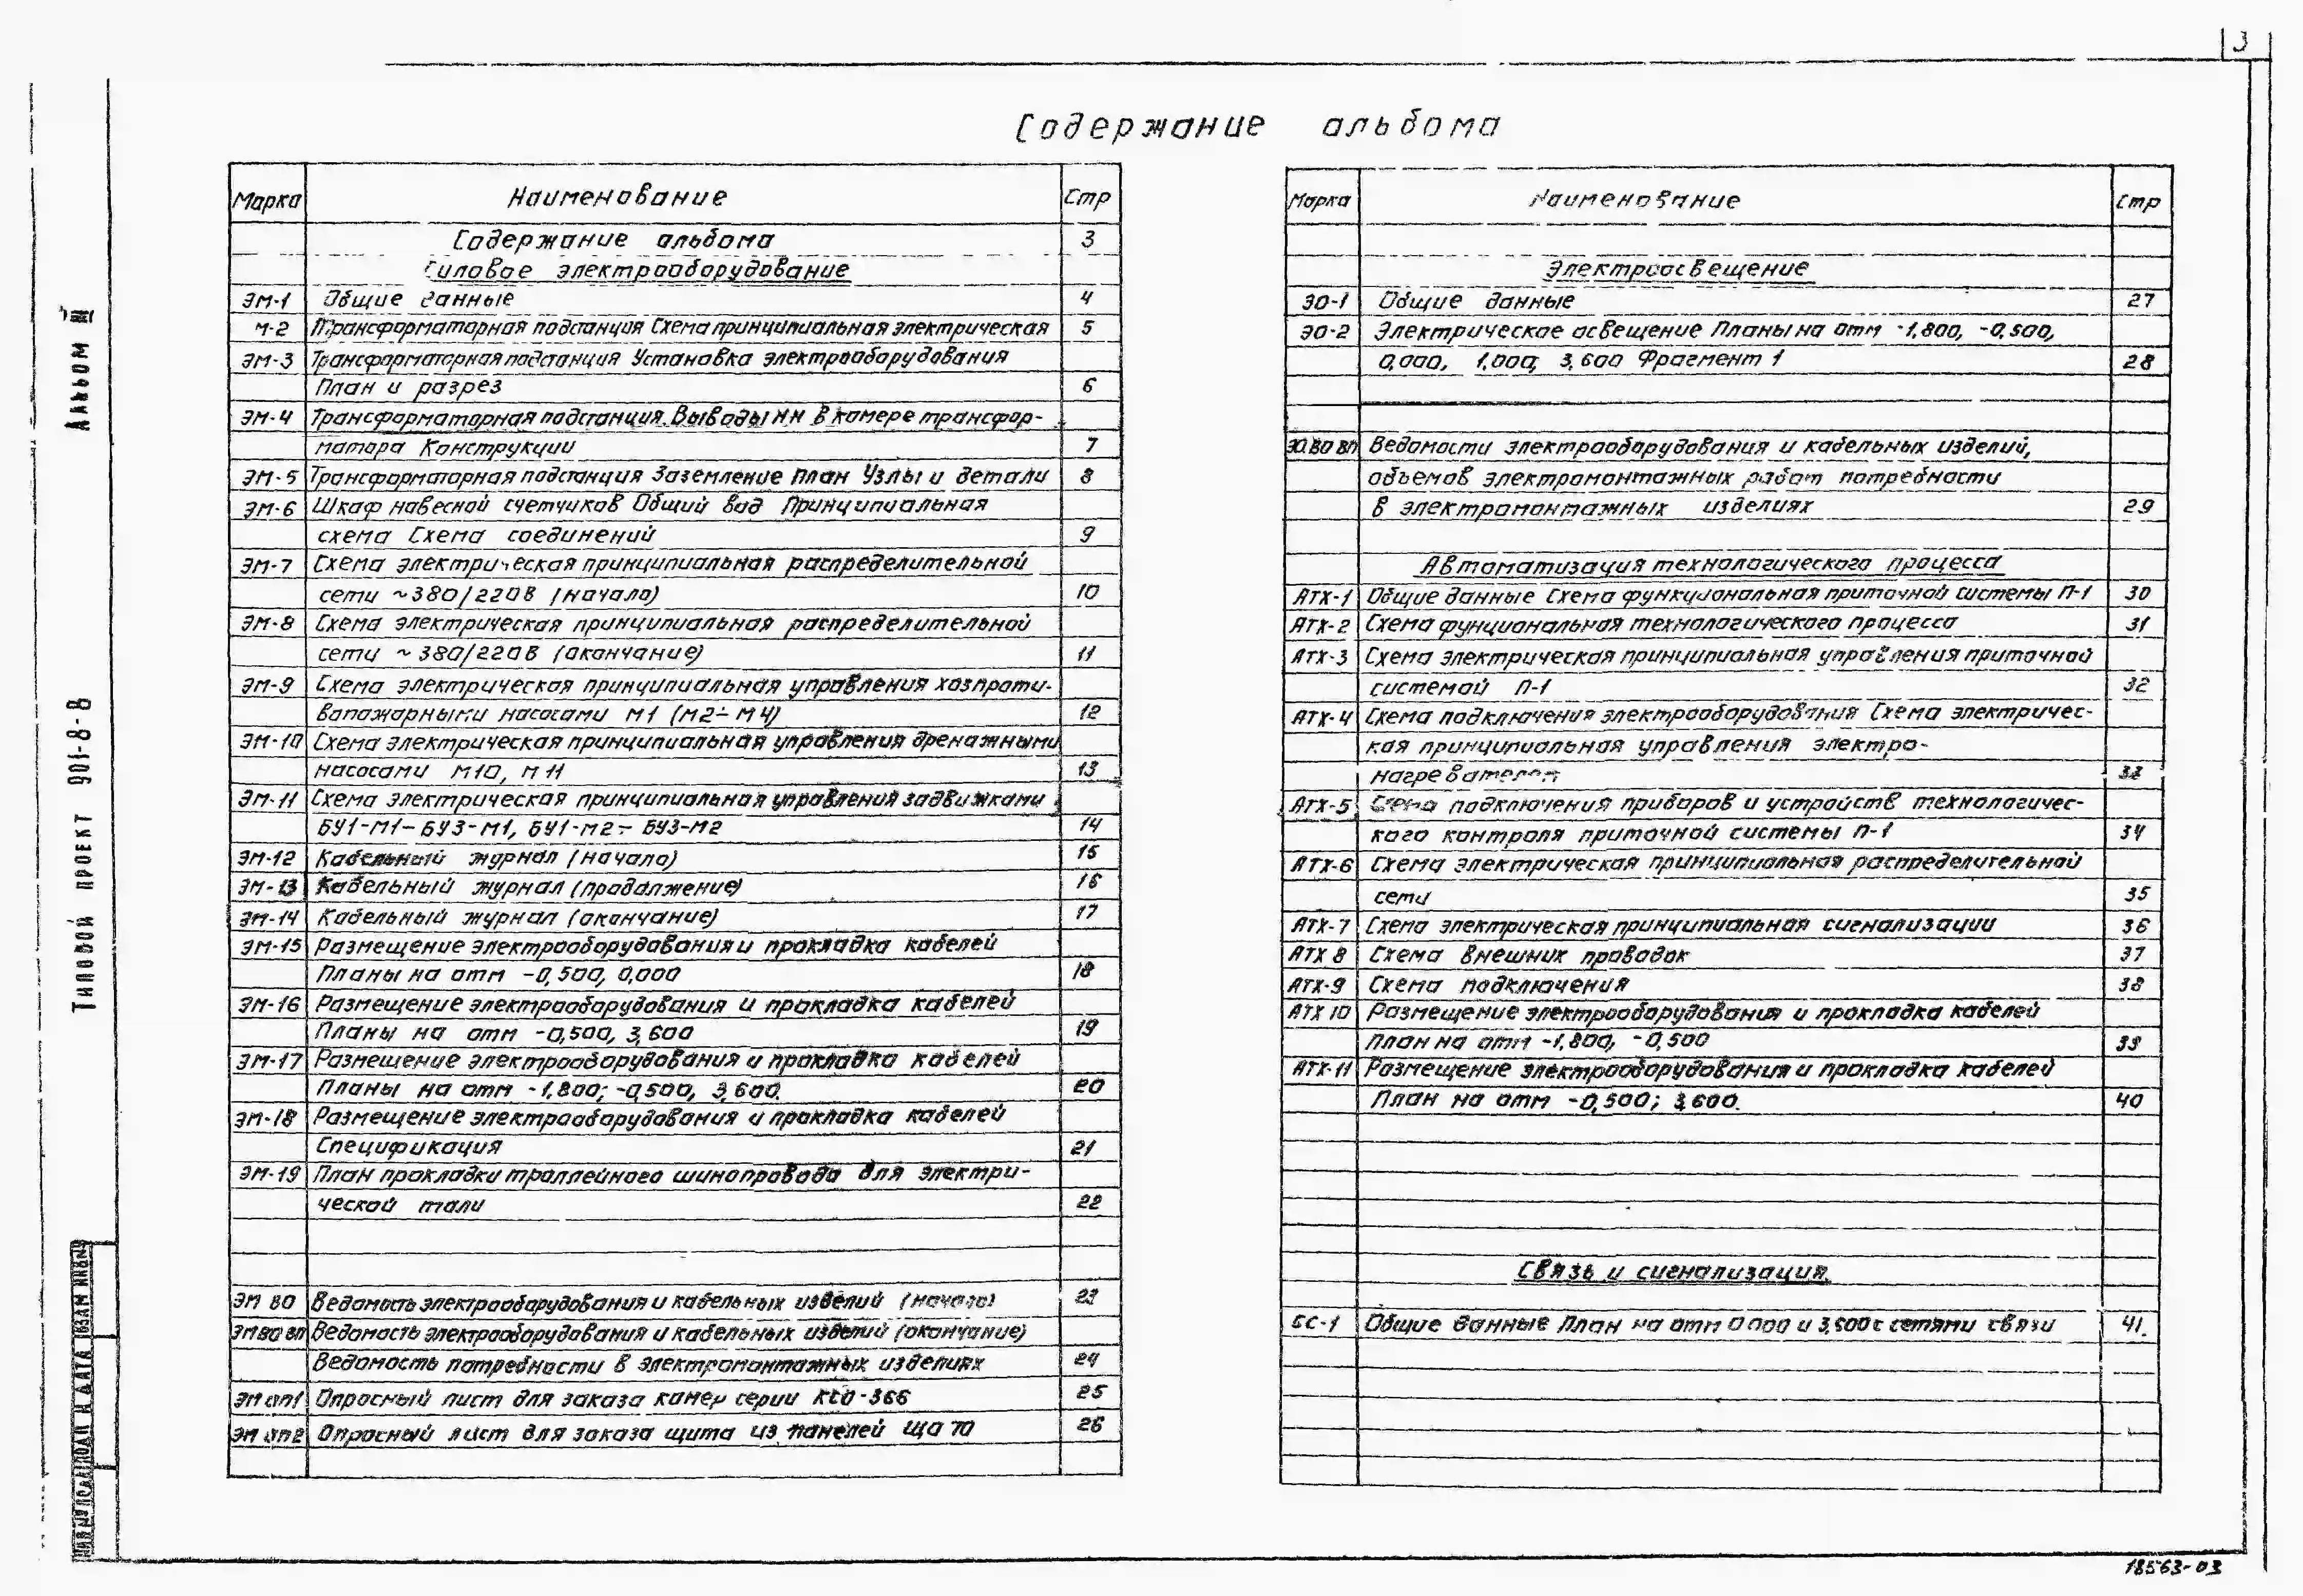 3
Содержание альбома
Альбом III
Типовой проект 901-8-8
Марка Наименование Стр
Содержание альбома 3
Силовое электрооборудование
ЭМ-1 Общие данные 4
М-2 Трансформаторная подстанция Схема принципиальная электрическая 5
ЭМ-3 Трансформаторная подстанция Установка электрооборудования
План и разрез 6
ЭМ-4 Трансформаторная подстанция. Выводы НН в камере трансфор-
матора Конструкции 7
ЭМ-5 Трансформаторная подстанция Заземление План Узлы и детали 8
ЭМ-6 Шкаф навесной счетчиков Общий вид Принципиальная
схема Схема соединений 9
ЭМ-7 Схема электрическая принципиальная распределительной
сети ~380/220В (начало) 10
ЭМ-8 Схема электрическая принципиальная распределительной
сети ~380/220В (окончание) 11
ЭМ-9 Схема электрическая принципиальная управления хозпроти-
вопожарными насосами М1 (М2-М4) 12
ЭМ-10 Схема электрическая принципиальная управления дренажными
насосами М10, М11 13
ЭМ-11 Схема электрическая принципиальная управления задвижками
БУ1-М1-БУ3-М1, БУ1-М2-БУ3-М2 14
ЭМ-12 Кабельный журнал (начало) 15
ЭМ-13 Кабельный журнал (продолжение) 16
ЭМ-14 Кабельный журнал (окончание) 17
ЭМ-15 Размещение электрооборудования и прокладка кабелей
Планы на отм -0,500, 0,000 18
ЭМ-16 Размещение электрооборудования и прокладка кабелей
Планы на отм -0,500, 3,600 19
ЭМ-17 Размещение электрооборудования и прокладка кабелей
Планы на отм -1,800; -0,500, 3,600. 20
ЭМ-18 Размещение электрооборудования и прокладка кабелей
Спецификация 21
ЭМ-19 План прокладки троллейного шинопровода для электри-
ческой тали 22
ЭМ ВО Ведомость электрооборудования и кабельных изделий (начало) 23
ЭМ ВО ВП Ведомость электрооборудования и кабельных изделий (окончание)
Ведомость потребности в электромонтажных изделиях 24
ЭМ оп1 Опросный лист для заказа камер серии КСО-366 25
ЭМ оп2 Опросный лист для заказа щита из панелей ЩО 70 26
Марка Наименование Стр
Электроосвещение
ЭО-1 Общие данные 27
ЭО-2 Электрическое освещение Планы на отм -1,800, -0,500,
0,000, 1,000, 3,600 Фрагмент 1 28
ЭО.ВО ВП Ведомости электрооборудования и кабельных изделий,
объемов электромонтажных работ потребности
в электромонтажных изделиях 29
Автоматизация технологического процесса
АТХ-1 Общие данные Схема функциональная приточной системы П-1 30
АТХ-2 Схема фунциональная технологического процесса 31
АТХ-3 Схема электрическая принципиальная управления приточной
системой П-1 32
АТХ-4 Схема подключения электрооборудования Схема электричес-
кая принципиальная управления электро-
нагревателем 33
АТХ-5 Схема подключения приборов и устройств технологичес-
кого контроля приточной системы П-1 34
АТХ-6 Схема электрическая принципиальная распределительной
сети 35
АТХ-7 Схема электрическая принципиальная сигнализации 36
АТХ 8 Схема внешних проводок 37
АТХ-9 Схема подключения 38
АТХ 10 Размещение электрооборудования и прокладка кабелей
План на отм -1,800, -0,500 39
АТХ-11 Размещение электрооборудования и прокладка кабелей
План на отм -0,500; 3,600. 40
Связь и сигнализация.
СС-1 Общие данные План на отм 0 000 и 3,600 с сетями связи 41.
Подп и дата Взам инв №
18563-03